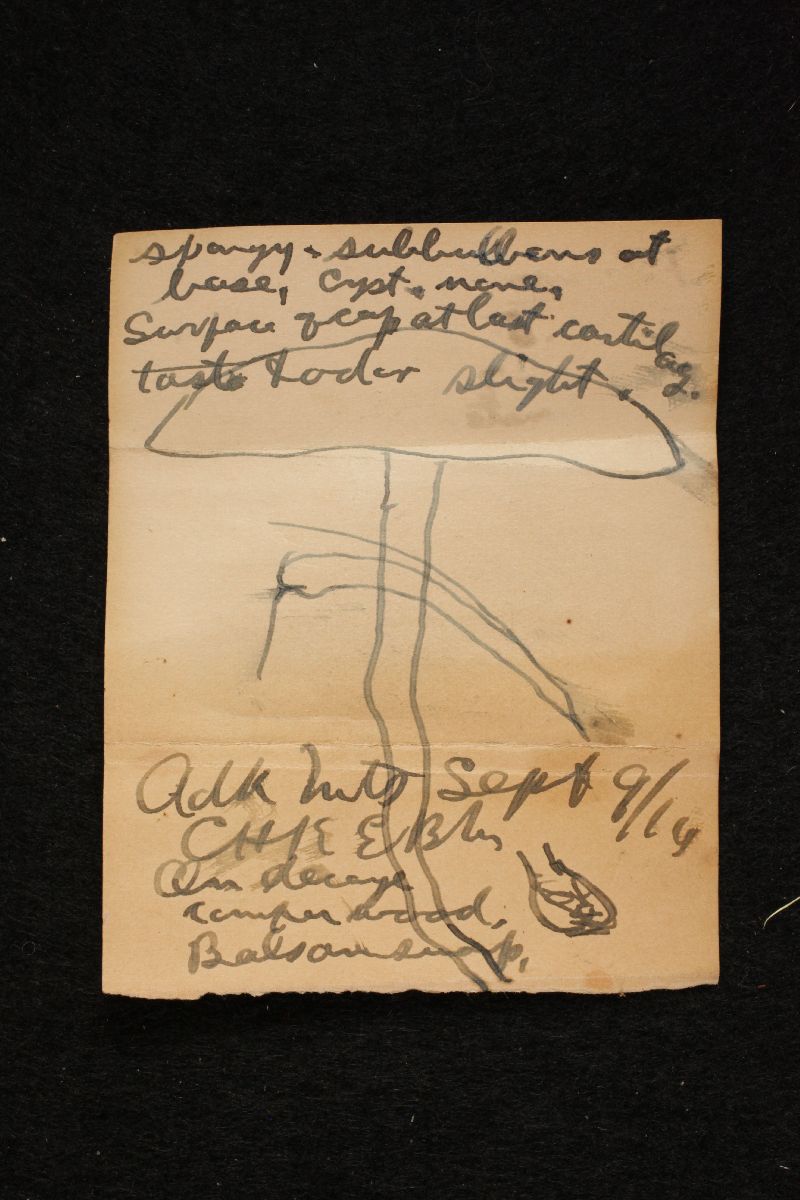 spongy + subbulbous at
base, Cyst. none.
Surface of cap at last cartilag.
taste & odor slight.
Adk Mts Sept 9/14
CHK E B
On decaye
conifer wood.
Balsam swamp.